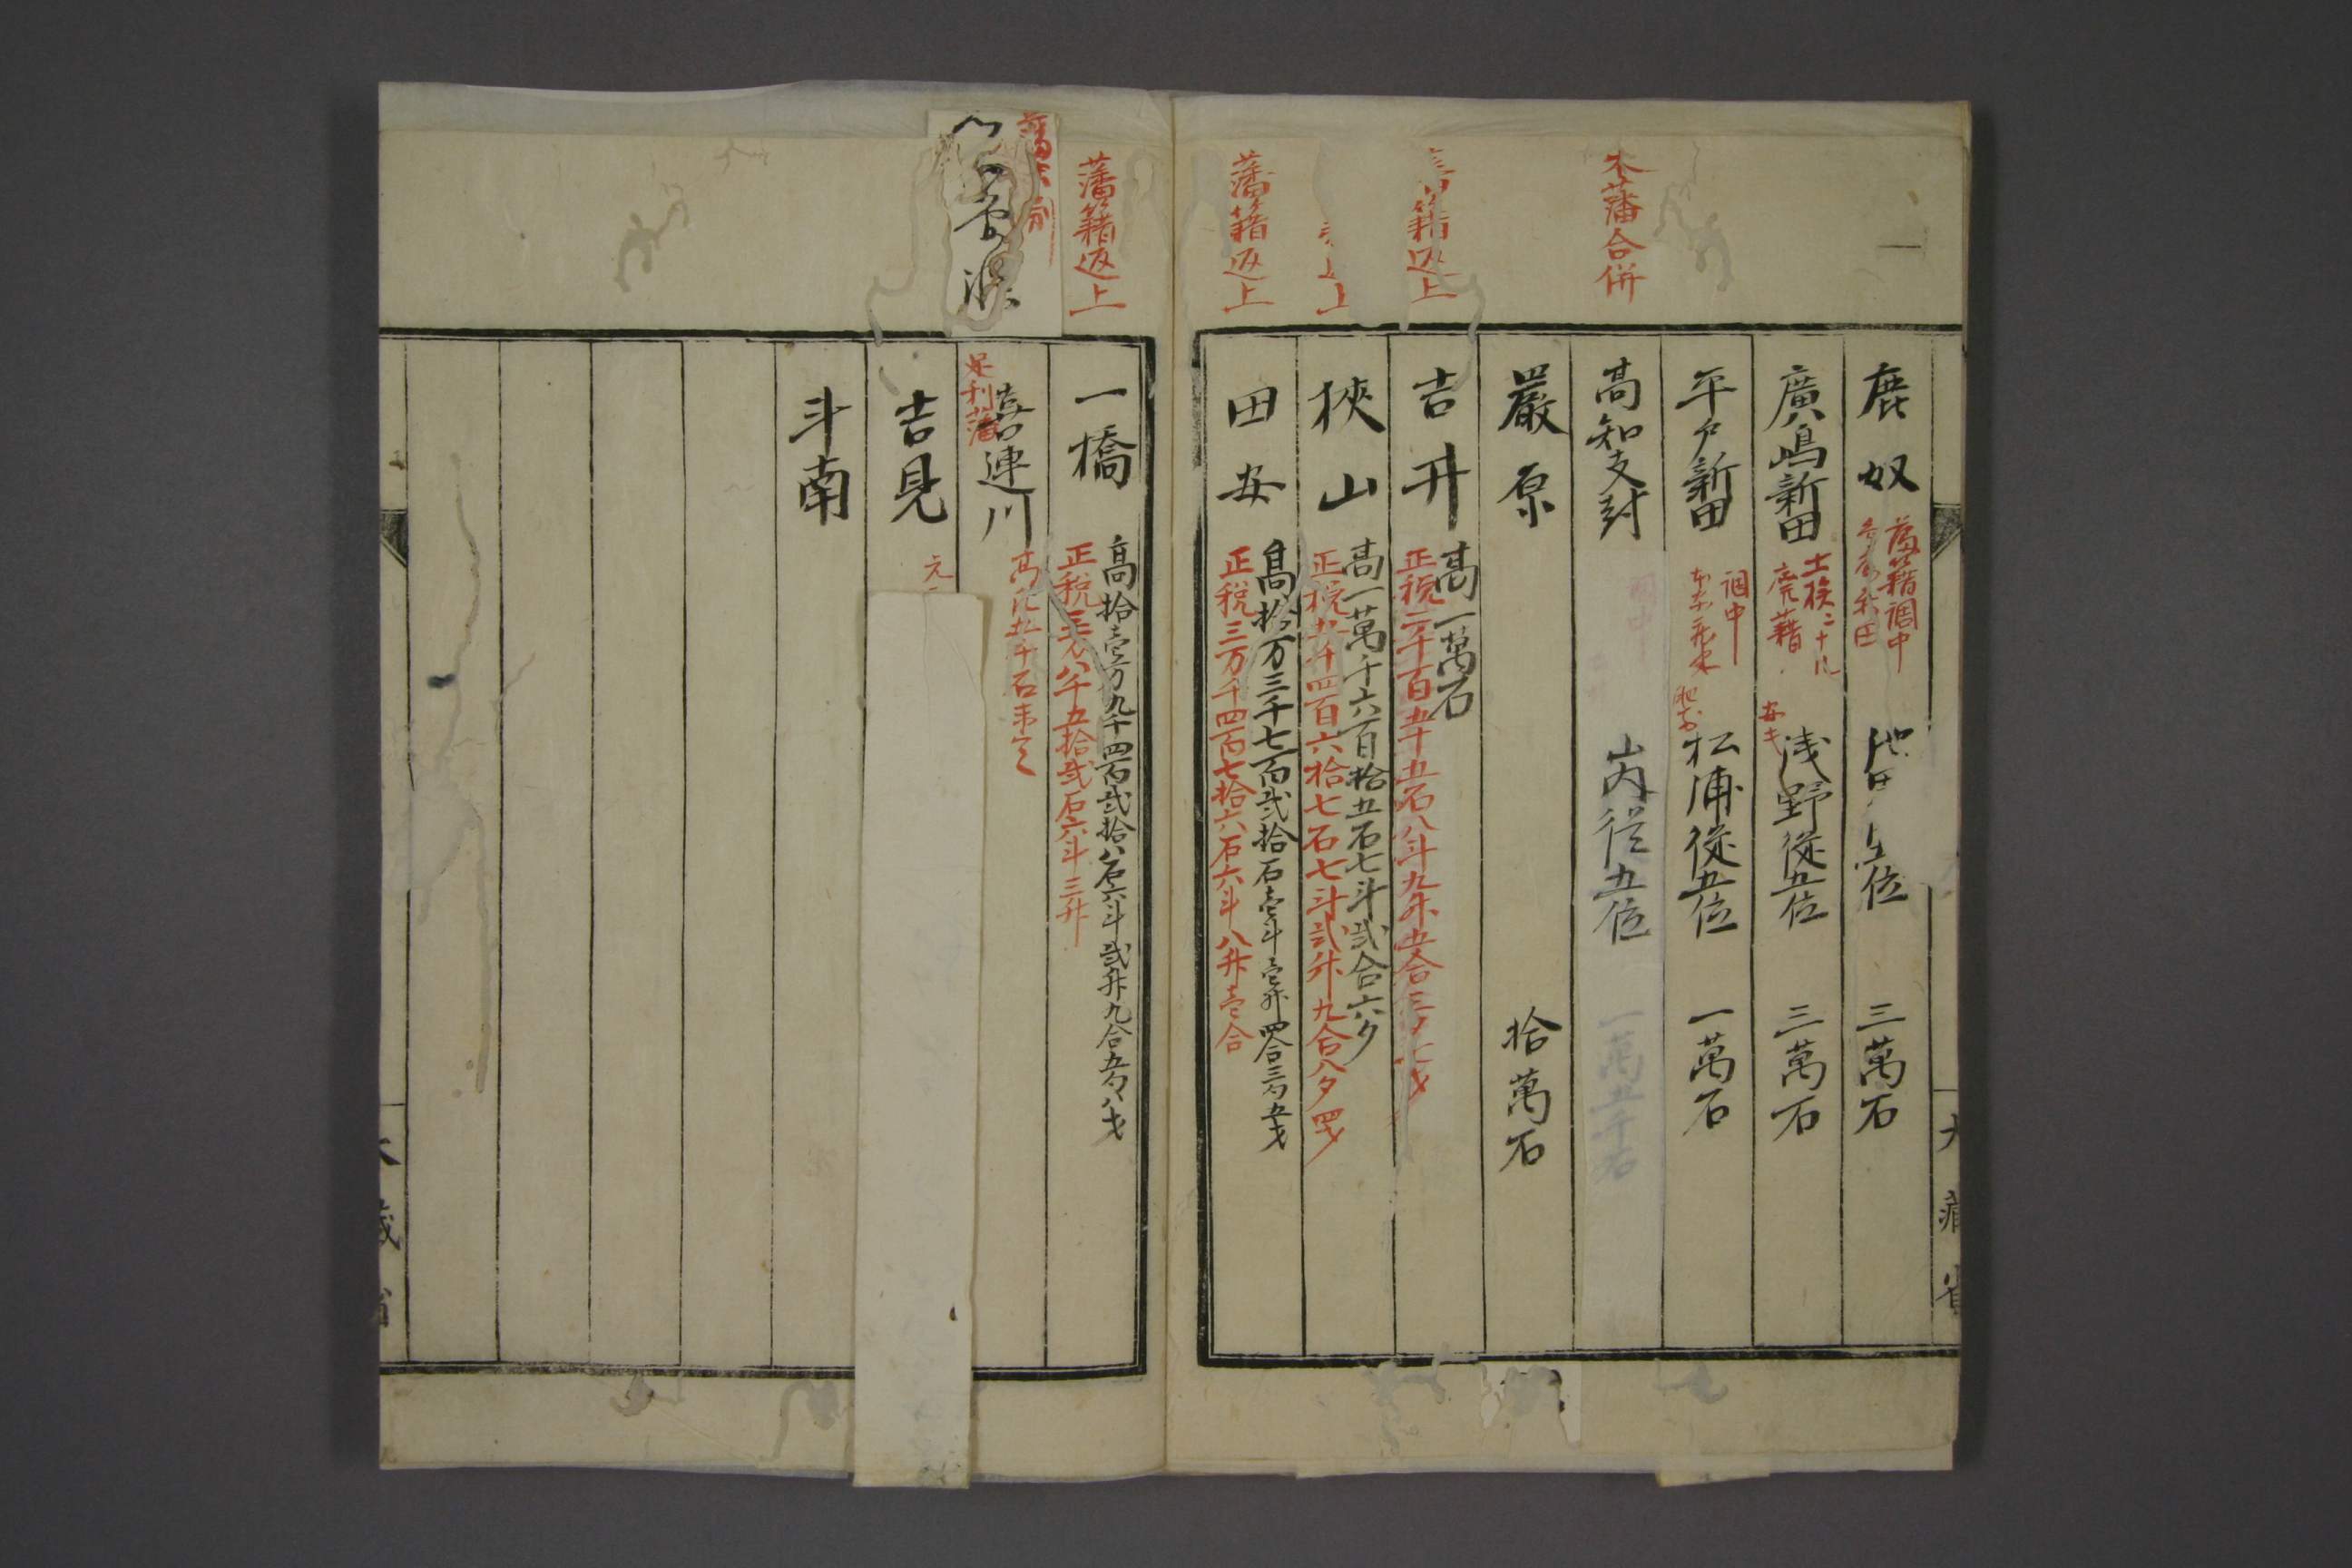 大藏省
鹿奴
藩籍調中
三萬石
廣嶋新田
士族二十
廃藉
浅野従五位
三萬石
平戸新田
調中
松浦従五位
一萬石
本藩合併
高知支封
山内従五位
一萬五千石
嚴原
拾萬石
籍返上
吉井
高一萬石
正税二千百五十五石八斗九升五合三夕
上
狹山
高一萬千六百拾五石七斗貳合六夕
正税五千四百六拾七石七斗貳升九合八夕四才
藩籍返上
田安
高拾万三千七百貳拾石壱斗壱升四合三勺五才
正税三万千四百七拾六石六斗八升壱合
藩籍返上
一橋
高拾壱万九千四百貳拾八石六斗貳升九合五勺八才
八千五拾貳石六斗三升
足利藩
喜連川
高凡五千石
吉見
元
斗南
大藏省